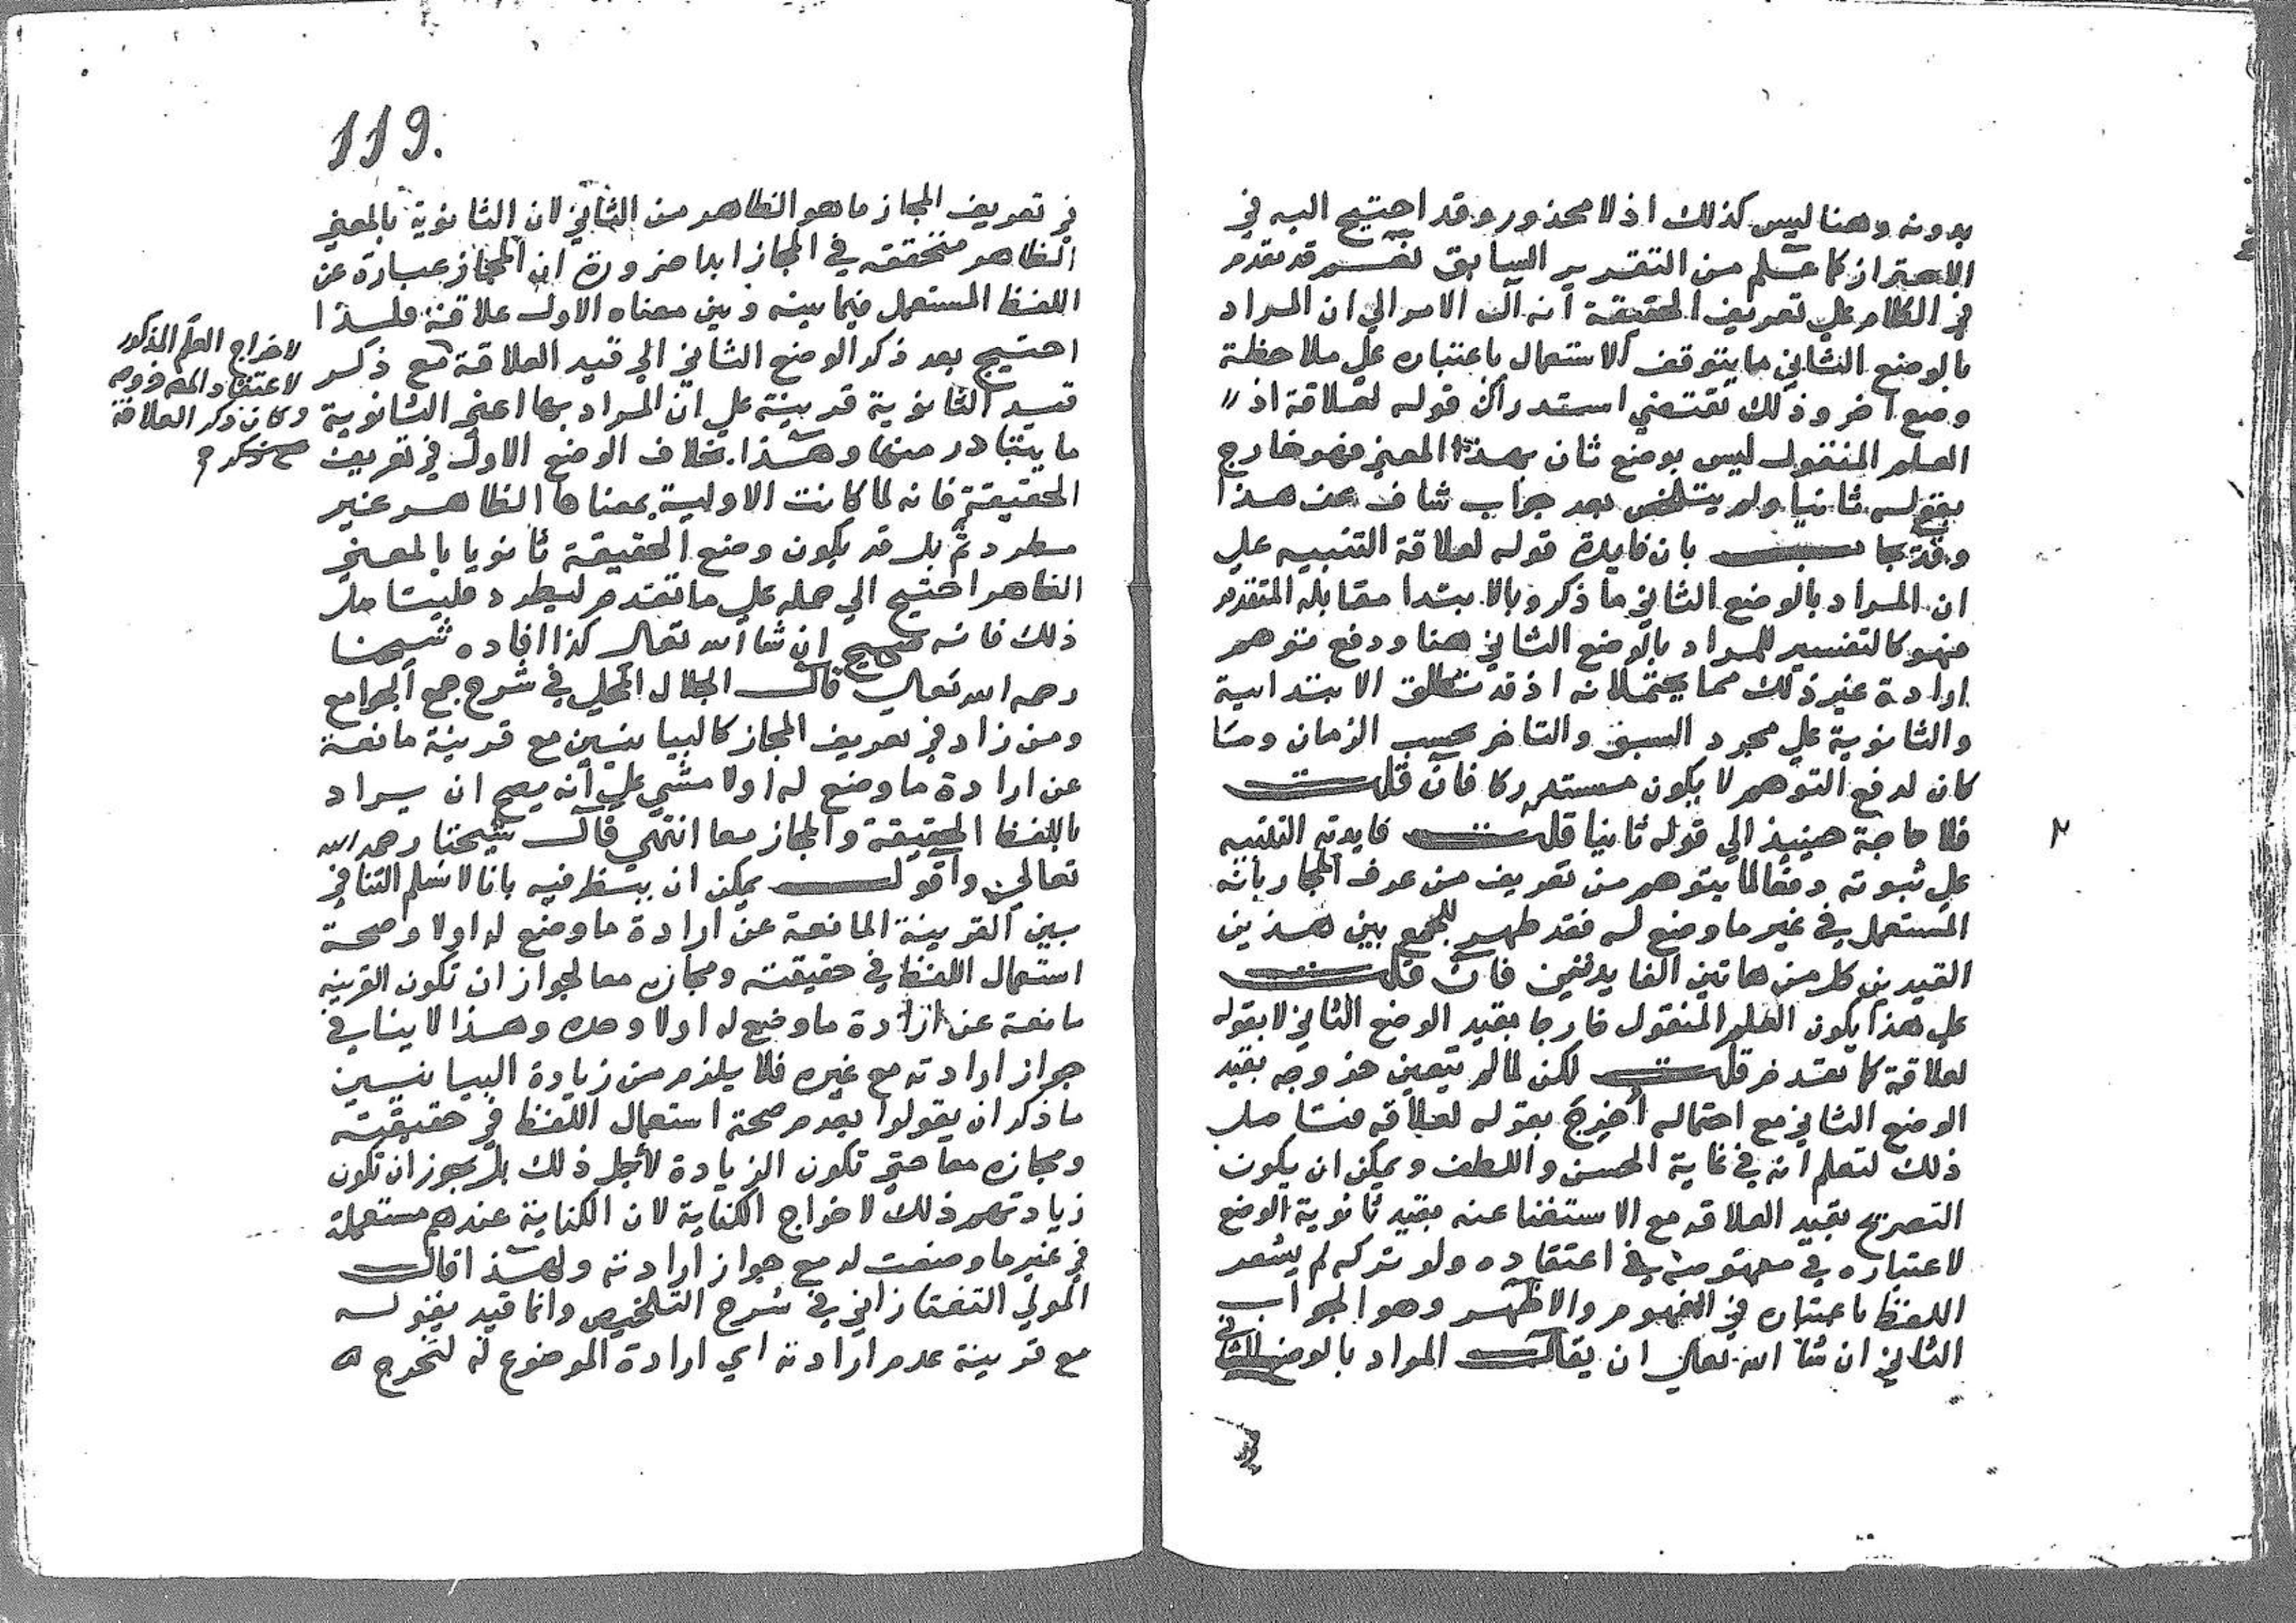 بدونه وهنا ليس كذلك اذ لا محذور وقد احتيج اليه في
الاحتراز كما علم من التقرير السابق نعم قد تقدم
في الكلام علي تعريف الحقيقة انه آل الامر الي ان المراد
بالوضع الثاني ما يتوقف الاستعمال باعتباره علي ملاحظة
وضع اخر وذلك يقتضي استدراك قوله لعلاقة اذ
العلم المنقول ليس بوضع ثان بهذا المعني فهو خارج
بقوله ثانيا ولم يتلخص بعد جواب شاف عن هذا
وقد يجاب بان فايدة قوله لعلاقة التنبيه علي
ان المراد بالوضع الثاني ما ذكر وبالابتدا مقابله المتقدم
فهو كالتفسير للمراد بالوضع الثاني هنا ودفع توهم
ارادة غير ذلك مما يحتملانه اذ قد تطلق الابتدائية
والثانوية علي مجرد السبق والتاخر بحسب الزمان وما
كان لدفع التوهم لا يكون مستدركا فان قلت
فلا حاجة حينيذ الي قوله ثانيا قلت فايدته التنبيه
علي ثبوته دفعا لما يتوهم من تعريف من عرف المجاز بانه
المستعمل في غير ما وضع له فقد ظهر للجمع بين هذين
القيدين كل من هاتين الفايدتين فان قلت
علي هذا يكون العلم المنقول خارجا بقيد الوضع الثاني لا بقوله
لعلاقة كما تقدم قلت لكن لما لم يتعين خروجه بقيد
الوضع الثاني مع احتماله أخرج بقوله لعلاقة فتامل
ذلك لتعلم انه في غاية الحسن واللطف ويمكن ان يكون
التصريح بقيد العلاقه مع الاستغنا عنه بقيد ثانوية الوضع
لاعتباره في مفهومه في اعتقاده ولو تركه لم يشعر
اللفظ باعتباره في المفهوم والاظهر وهو الجواب
الثاني ان شا الله تعالي ان يقال المراد بالوضع الثاني
في
119.
في تعريف المجاز ما هو الظاهر من الثاني لان الثانوية بالمعني
الظاهر متحققه في المجاز ابدا ضرورة ان المجاز عبارة عن
اللفظ المستعمل فيما بينه وبين معناه الاول علاقة فلهذا
احتيج بعد ذكر الوضع الثاني الي قيد العلاقة مع ذكر
قيد الثانوية قرينة علي ان المراد بها اعني الثانوية
ما يتبادر منها وهذا بخلاف الوضع الاول في تعريف
الحقيقة فانه لما كانت الاولية بمعناها الظاهر غير
مطرد ثم بل قد يكون وضع الحقيقة ثانويا بالمعني
الظاهر احتيج الي حمله علي ما تقدم ليطرد فليتامل
ذلك فانه صحيح ان شا الله تعالي كذا افاده شيخنا
رحمه الله تعالي قال الجلال المحلي في شرح جمع الجوامع
ومن زاد في تعريف المجاز كالبيانيين مع قرينة مانعة
عن ارادة ما وضع له اولا مشي علي أنه يصح ان يراد
باللفظ الحقيقة والمجاز معا انتهي قال شيخنا رحمه الله
تعالي واقول يمكن ان ينظر فيه بانا لا نسلم التنافي
بين القرينة المانعة عن ارادة ما وضع له اولا وصحة
استعمال اللفظ في حقيقته ومجازه معا لجواز ان تكون القرينه
مانعة عن ارادة ما وضع له اولا وحده وهذا لا ينافي
جواز ارادته مع غيره فلا يلزم من زيادة البيانيين
ما ذكر ان يقولوا بعدم صحة استعمال اللفظ في حقيقته
ومجازه معا حتي تكون الزيادة لأجل ذلك بل يجوز ان تكون
زيادتهم ذلك لاخراج الكناية لان الكناية عندهم مستعملة
في غير ما وضعت له مع جواز ارادته ولهذا قال
المولي التفتازاني في شرح التلخيص وانما قيد بقوله
مع قرينة عدم ارادته اي ارادة الموضوع له لتخرج
لاخراج العلم المذكور
لاعتقاد
وكان ذكر العلاقة
صح